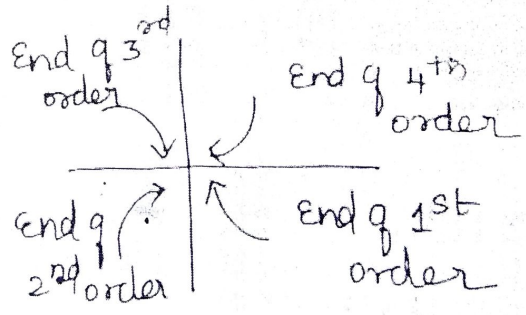 End of 3rd
order
End of 4th
order
End of
2nd order
End of 1st
order